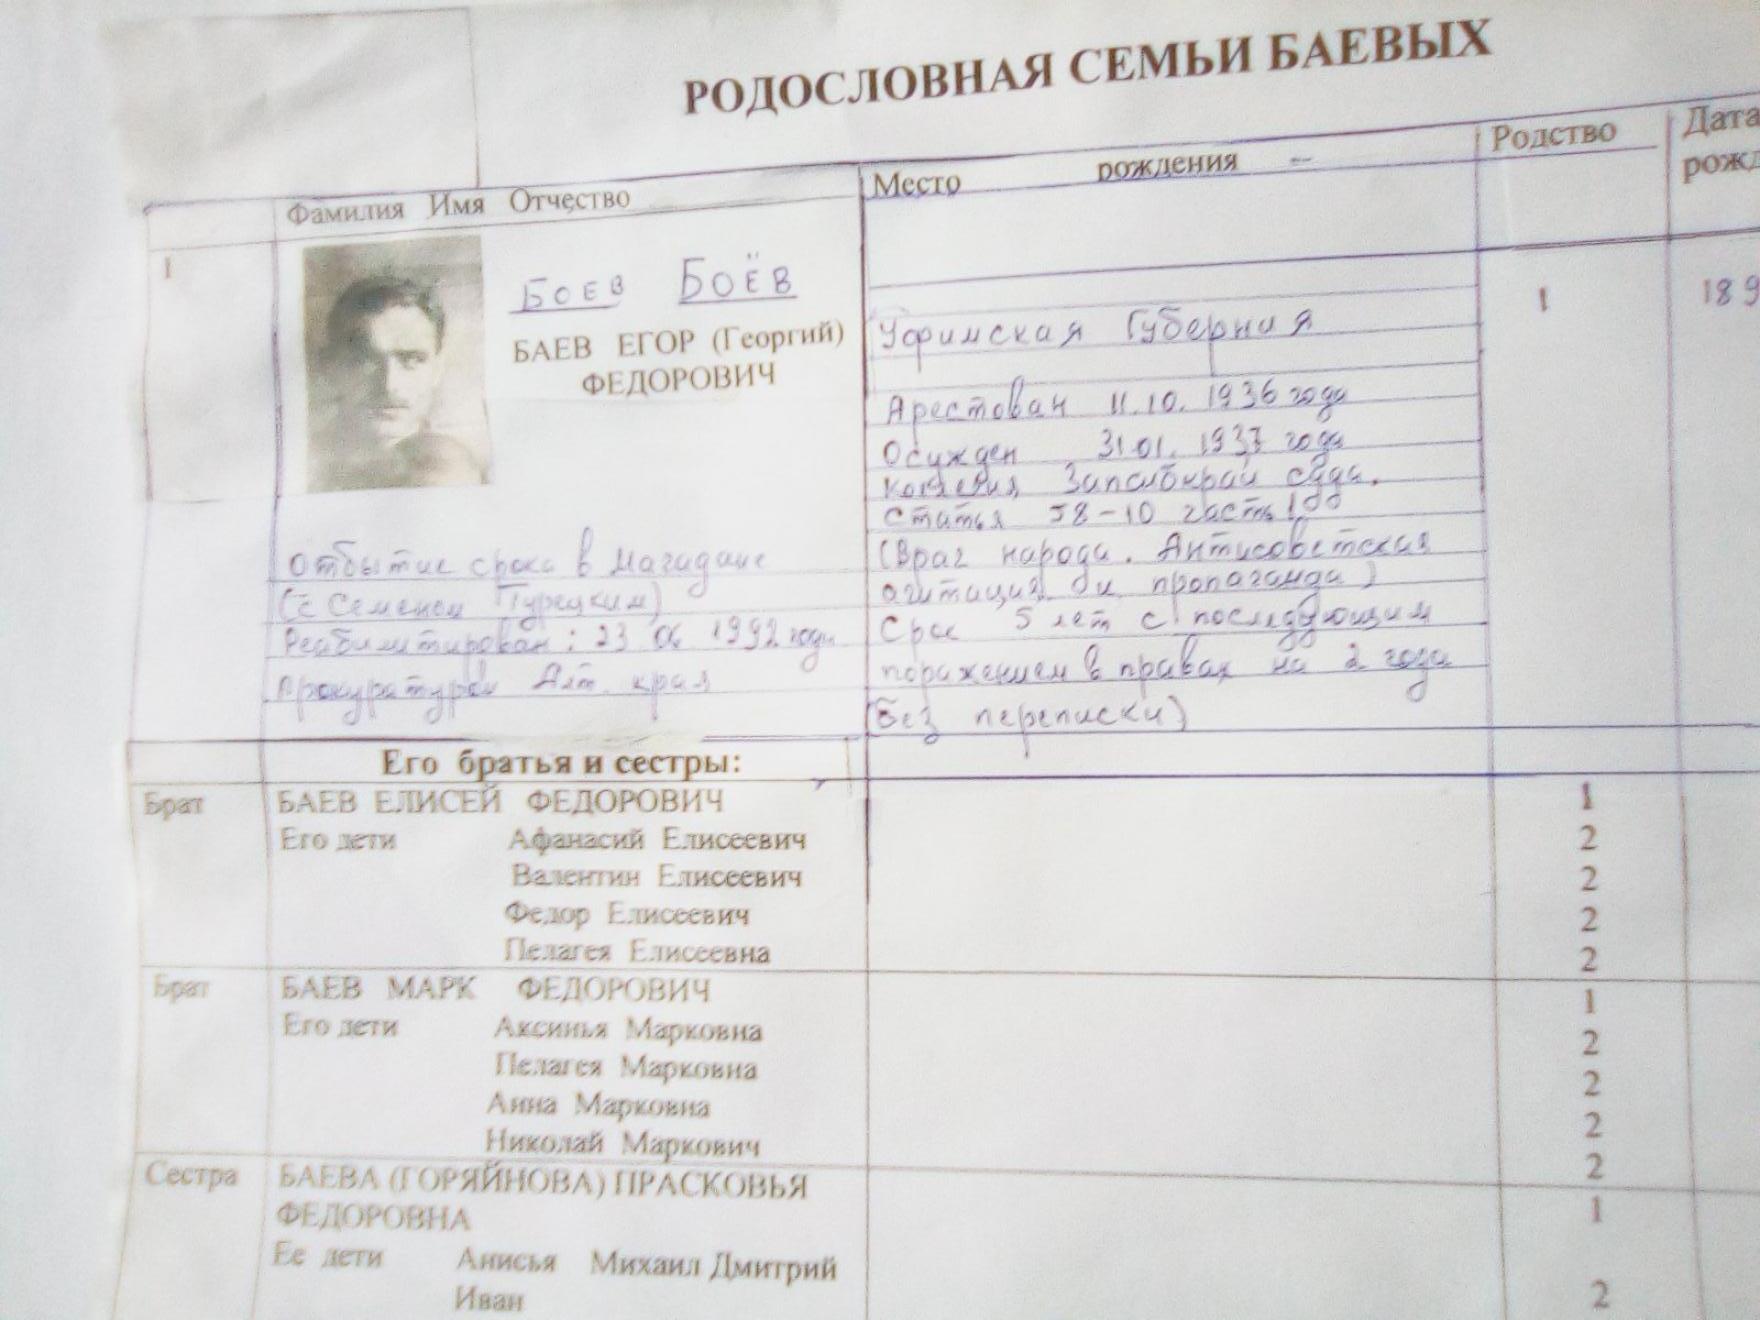 РОДОСЛОВНАЯ СЕМЬИ БАЕВЫХ
Фамилия Имя Отчество
Место рождения
Родство
Дата
рожд
1
Боев Боёв
БАЕВ ЕГОР (Георгий)
ФЕДОРОВИЧ
Отбытие срока в Магадане
(с Семеном Турецким)
Реабилитирован: 23 06 1992 года
Прокуратурой Алт. края
Уфимская Губерния
Арестован 11.10. 1936 года
Осужден 31.01. 1937 года
Запсибкрай суда.
Статья 58-10 часть
(Враг народа. Антисоветская
агитация и пропаганда)
Срок 5 лет с последующим
поражением в правах на 2 года
(Без переписки)
1
189
Его братья и сестры:
Брат БАЕВ ЕЛИСЕЙ ФЕДОРОВИЧ 1
Его дети Афанасий Елисеевич 2
Валентин Елисеевич 2
Федор Елисеевич 2
Пелагея Елисеевна 2
Брат БАЕВ МАРК ФЕДОРОВИЧ 1
Его дети Аксинья Марковна 2
Пелагея Марковна 2
Анна Марковна 2
Николай Маркович 2
Сестра БАЕВА (ГОРЯЙНОВА) ПРАСКОВЬЯ
ФЕДОРОВНА 1
Ее дети Анисья Михаил Дмитрий
Иван 2